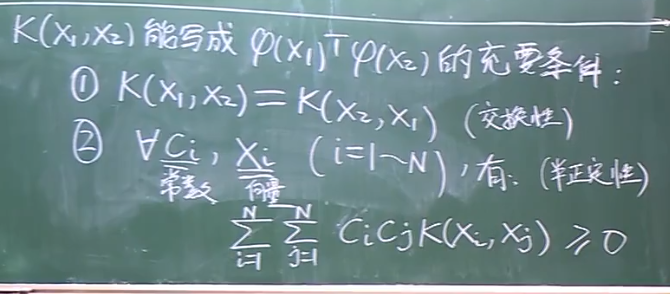 K(X₁,X₂)能写成 φ(X₁)ᵀφ(X₂)的充要条件:
① K(X₁,X₂)=K(X₂,X₁) (交换性)
② ∀Ci, Xi (i=1~N), 有: (半正定性)
常数 向量
∑_{i=1}^{N} ∑_{j=1}^{N} CiCjK(Xi,Xj)≥0